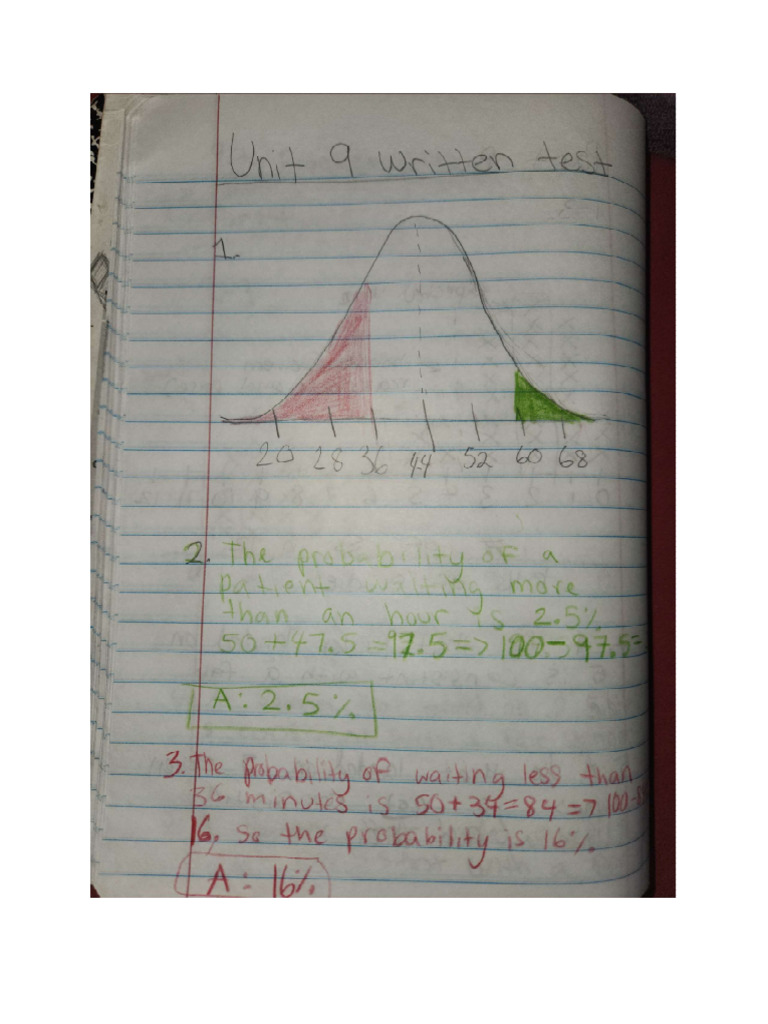 Unit 9 written test
1.
20 28 36 44 52 60 68
2. The probability of a
patient waiting more
than an hour is 2.5%
50+47.5=97.5=>100-97.5=
A: 2.5%
3. The probability of waiting less than
36 minutes is 50+34=84=>100-84
16, so the probability is 16%.
A: 16%